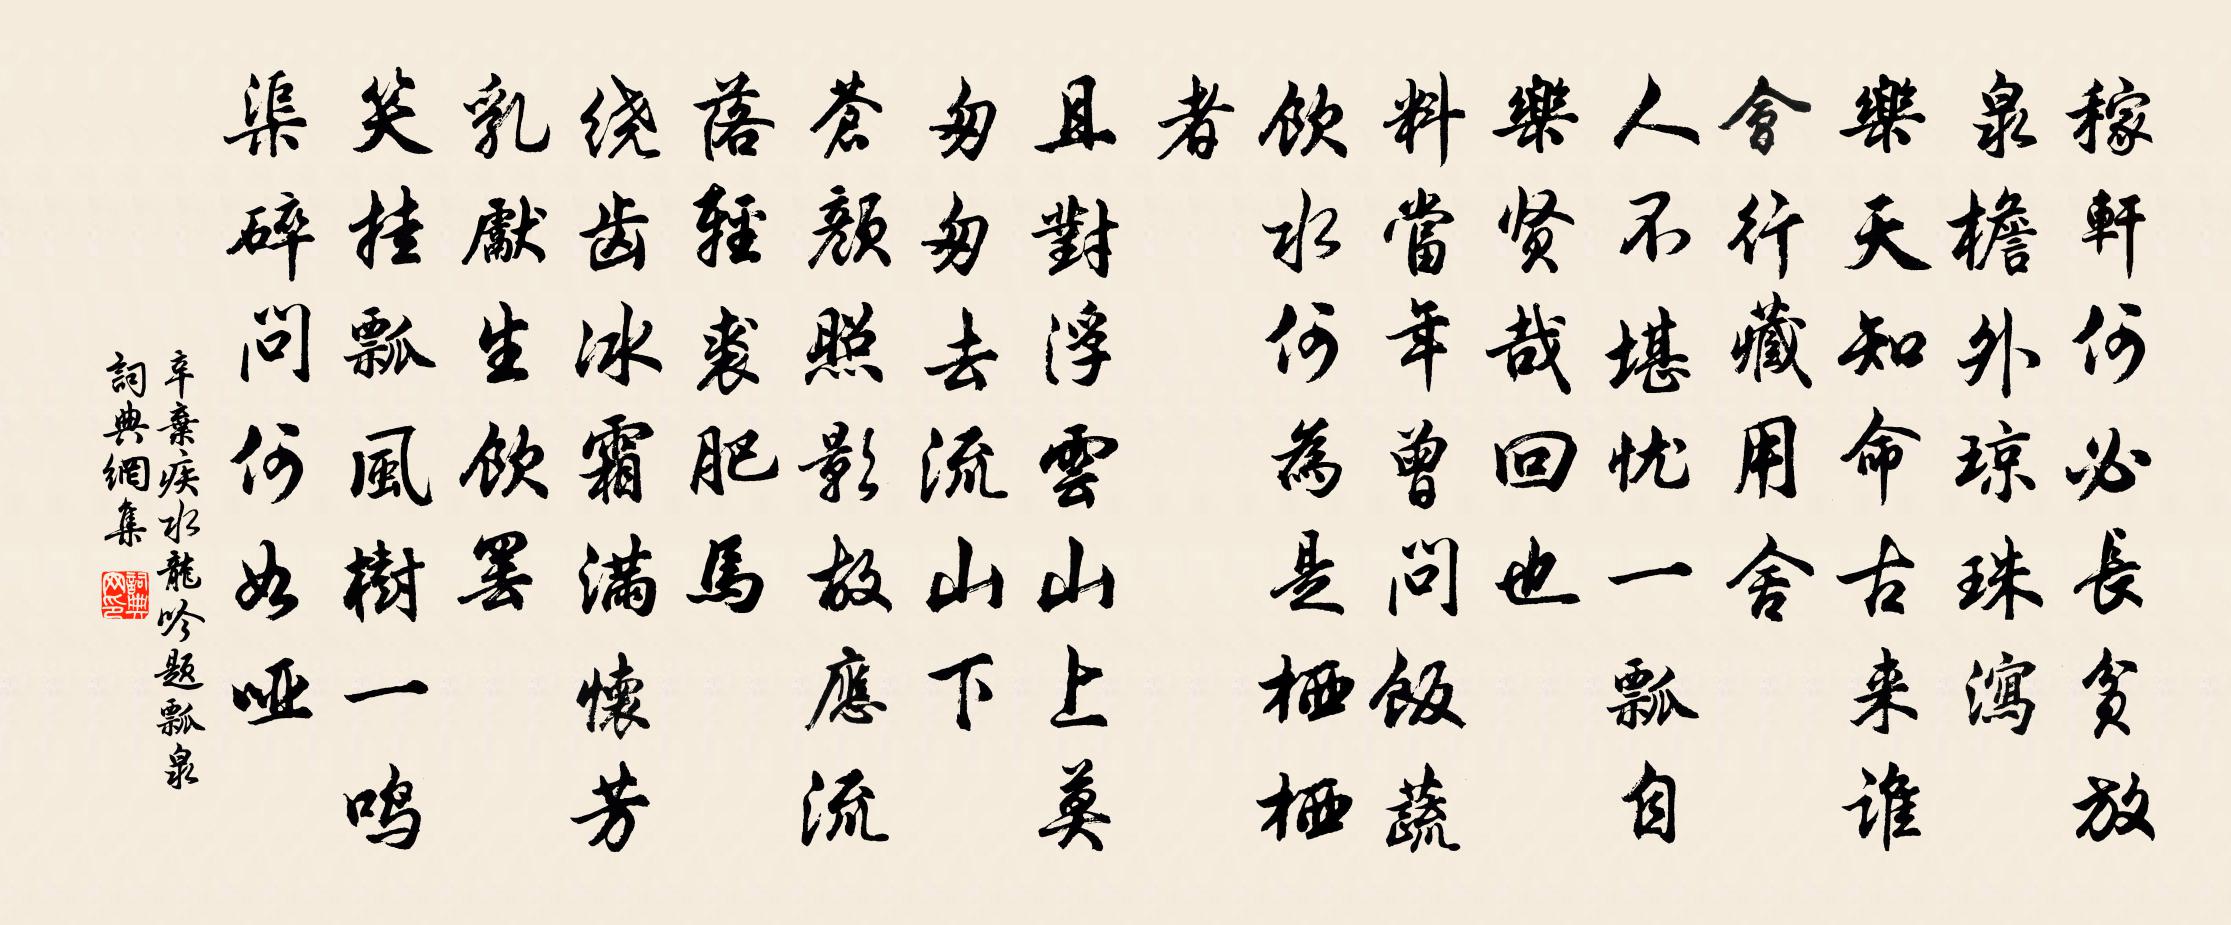 稼軒何必長貧放
泉檐外琼珠瀉
樂天知命古来谁
會行藏用舍
人不堪忧一瓢自
樂贤哉回也
料當年曾問飯蔬
飲水何為是栖栖
者
且對浮雲山上莫
匆匆去流山下
蒼顔照影故應流
落輕裘肥馬
绕齿冰霜满懷芳
乳獻生飲罢
笑挂瓢風樹一鸣
渠碎問何如哑
辛棄疾水龍吟题瓢泉
詞典網集
詞典网印